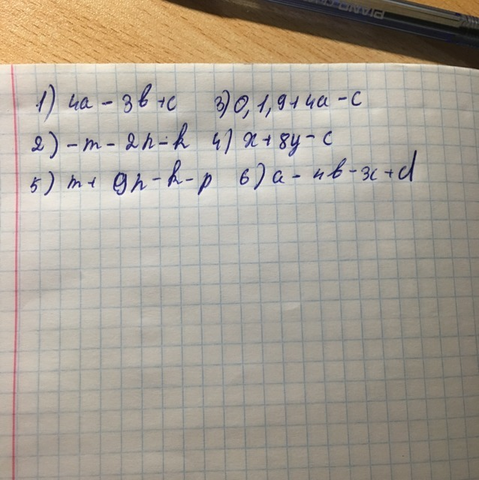 1) 4a - 3b + c 3) 0,1,9 + 4a - c
2) -m - 2n - k 4) x + 8y - c
5) m + 9n - k - p 6) a - 4b - 3c + d